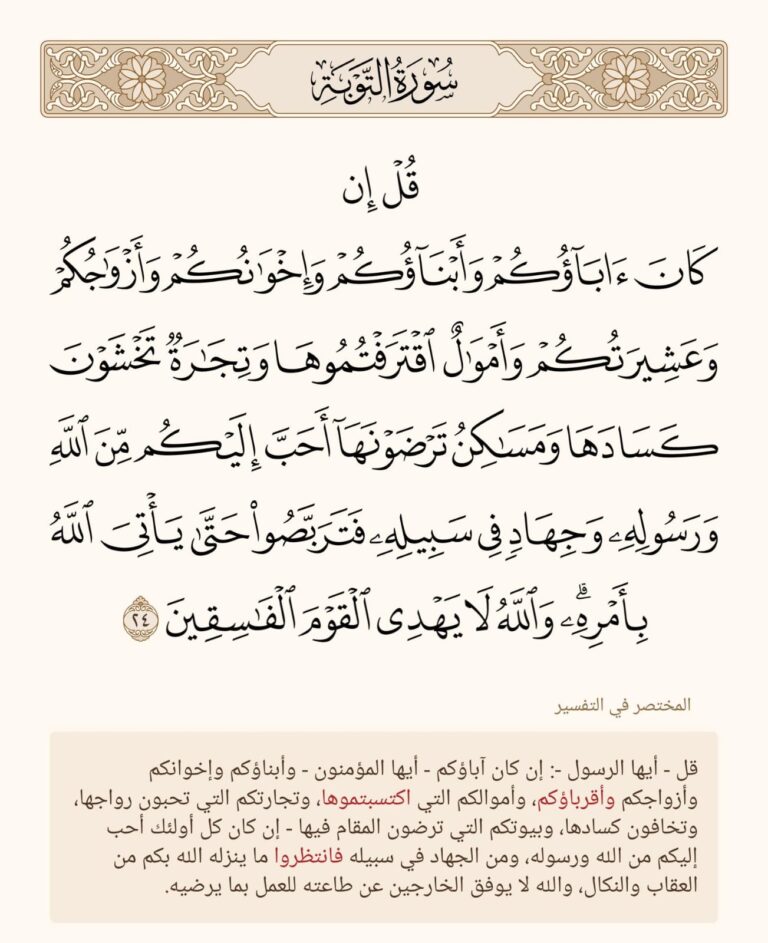 سُورَةُ التَّوۡبَةِ
قُلۡ إِن
كَانَ ءَابَآؤُكُمۡ وَأَبۡنَآؤُكُمۡ وَإِخۡوَٰنُكُمۡ وَأَزۡوَٰجُكُمۡ
وَعَشِيرَتُكُمۡ وَأَمۡوَٰلٌ ٱقۡتَرَفۡتُمُوهَا وَتِجَٰرَةٞ تَخۡشَوۡنَ
كَسَادَهَا وَمَسَٰكِنُ تَرۡضَوۡنَهَآ أَحَبَّ إِلَيۡكُم مِّنَ ٱللَّهِ
وَرَسُولِهِۦ وَجِهَادٖ فِي سَبِيلِهِۦ فَتَرَبَّصُواْ حَتَّىٰ يَأۡتِيَ ٱللَّهُ
بِأَمۡرِهِۦۗ وَٱللَّهُ لَا يَهۡدِي ٱلۡقَوۡمَ ٱلۡفَٰسِقِينَ ٢٤
المختصر في التفسير
قل - أيها الرسول -: إن كان آباؤكم - أيها المؤمنون - وأبناؤكم وإخوانكم
وأزواجكم وأقرباؤكم، وأموالكم التي اكتسبتموها، وتجارتكم التي تحبون رواجها،
وتخافون كسادها، وبيوتكم التي ترضون المقام فيها - إن كان كل أولئك أحب
إليكم من الله ورسوله، ومن الجهاد في سبيله فانتظروا ما ينزله الله بكم من
العقاب والنكال، والله لا يوفق الخارجين عن طاعته للعمل بما يرضيه.